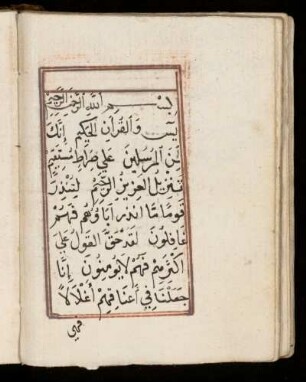 بسم الله الرحمن الرحيم
يس والقرآن الحكيم إنك
لمن المرسلين على صراط مستقيم
تنزيل العزيز الرحيم لتنذر
قوما ما أنذر آباؤهم فهم
غافلون لقد حق القول على
أكثرهم فهم لا يؤمنون إنا
جعلنا في أعناقهم أغلالا
فهي